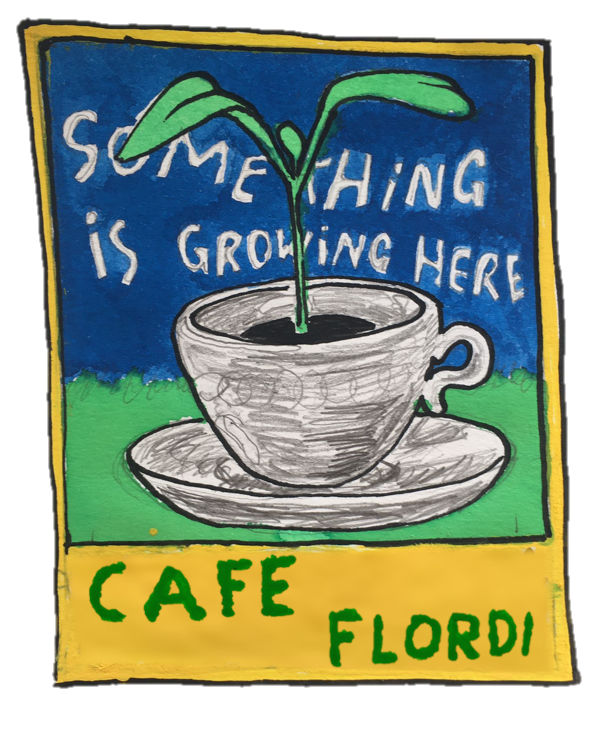 SOMETHING
iS GROWiNG HERE
CAFE
FLORDI